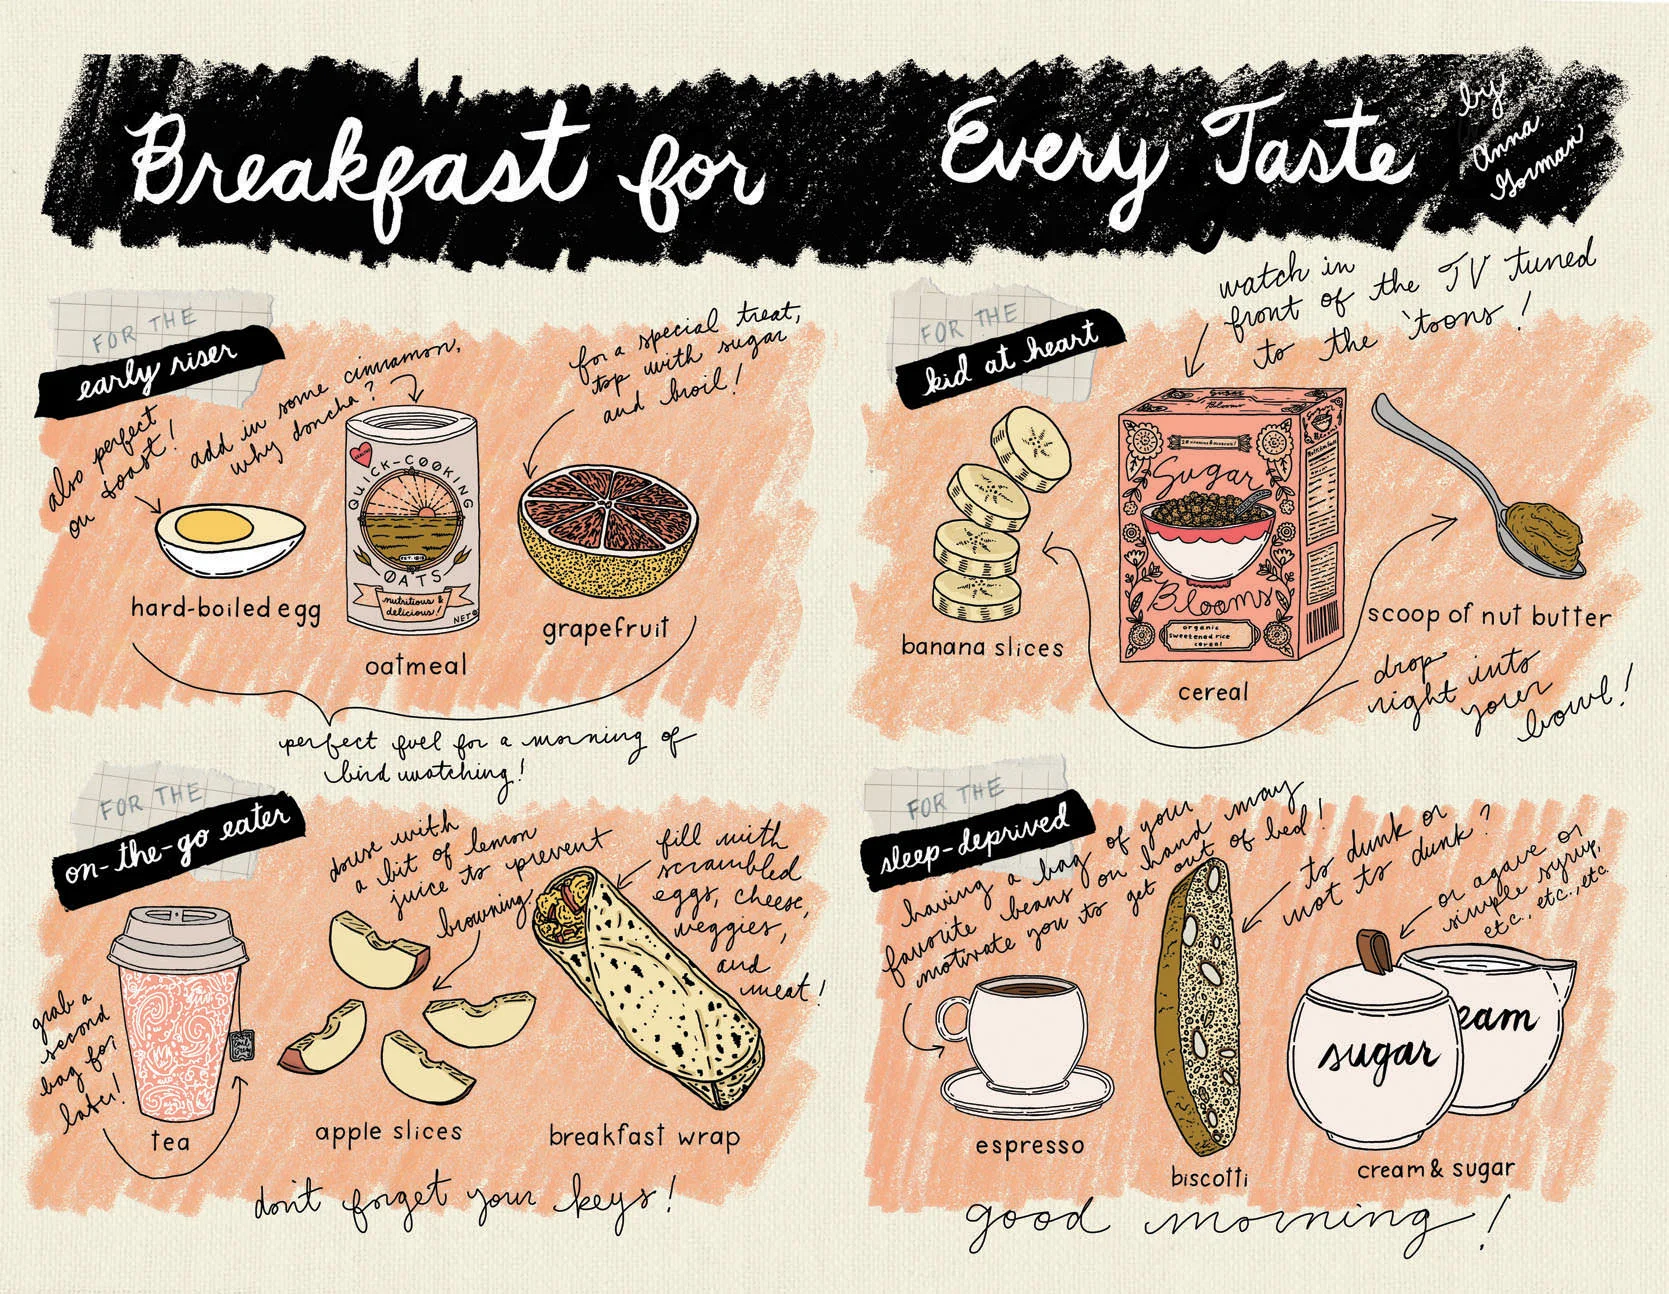 Breakfast for Every Taste
by
Anna
Gorman
FOR THE
early riser
also perfect
on toast!
add in some cinnamon,
why doncha?
for a special treat,
top with sugar
and broil!
QUICK-COOKING
OATS
nutritious &
delicious!
hard-boiled egg
oatmeal
grapefruit
perfect fuel for a morning of
bird watching!
FOR THE
kid at heart
watch in
front of the TV tuned
to the 'toons!
Sugar
Blooms
Sugar
Blooms
organic
sweetened rice
cereal
banana slices
cereal
scoop of nut butter
drop
right into
your
bowl!
FOR THE
on-the-go eater
douse with
a bit of lemon
juice to prevent
browning.
fill with
scrambled
eggs, cheese,
veggies,
and
meat!
grab a
second
bag for
later!
Earl
Grey
tea
apple slices
breakfast wrap
don't forget your keys!
FOR THE
sleep-deprived
having a bag of your
favorite beans on hand may
motivate you to get out of bed!
to dunk or
not to dunk?
or agave or
simple syrup,
etc., etc., etc.
sugar
eam
espresso
biscotti
cream & sugar
good morning!